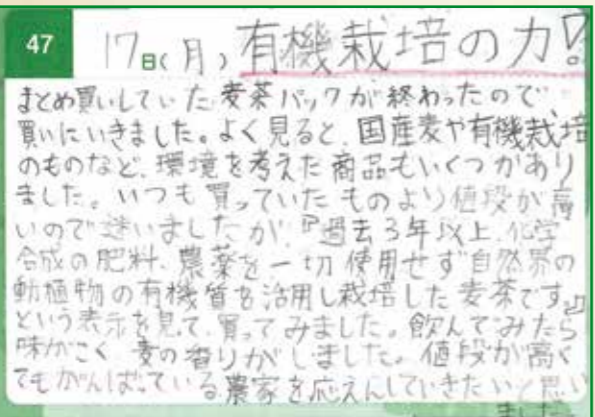 47
17日(月)有機栽培の力!!
まとめ買いしていた麦茶パックが終わったので
買いにいきました。よく見ると、国産麦や有機栽培
のものなど、環境を考えた商品もいくつかあり
ました。いつも買っていたものより値段が高
いので迷いましたが、『過去3年以上、化学
合成の肥料、農薬を一切使用せず自然界の
動植物の有機質を活用し栽培した麦茶です。』
という表示を見て、買ってみました。飲んでみたら
味がこく、麦の香りがしました。値段が高く
てもがんばっている農家を応えんしていきたいと思い
ました